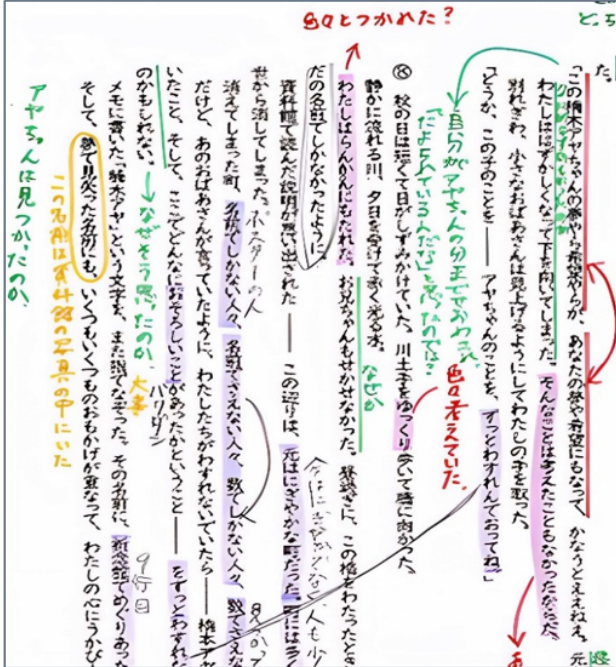 色々とつかれた?
た。
「この楠木アヤちゃんの夢やら希望やらが、あなたの夢や希望にもなって、かなうとええねえ。元
わたしははずかしくなって下を向いてしまった。そんなことは考えたこともなかったからだ。
別れぎわ、小さなおばあさんは見上げるようにしてわたしの手を取った。
「どうか、この子のことを――アヤちゃんのことを、ずっとわすれんでおってね。」
自分がアヤちゃんの分まで
色々考えていた。
⑧ 秋の日は短くて日がしずみかけていた。川土手をゆっくり歩いて駅に向かった。
静かに流れる川、夕日を受けて赤く光る水。
なぜか
わたしはらんかんにもたれた。お兄ちゃんもせかせなかった。昼過ぎに、この橋をわたったとき
だの名前でしかなかったように。
資料館で読んだ説明が思い出された――この辺りは、元はにぎやかな町だった。町には多く
世から消してしまった。
ポスターの人
消えてしまった町、名前でしかない人々、名前でさえない人々、数でしかない人々、数でさえな
だけど、あのおばあさんが言っていたように、わたしたちがわすれないでいたら――楠木アヤ
いたこと、そして、ここでどんなにおそろしいことがあったかということ――をずっとわすれな
のかもしれない。
なぜそう思ったのか。
大事
9行目
メモに書いた「楠木アヤ」という文字を、また指でなぞった。その名前に、祈念館でめぐりあった
そして、夢で見失った名前にも、いくつもいくつものおもかげが重なって、わたしの心にうかび
この名前は資料館の写真の中にいた
アヤちゃんは見つかったのか、